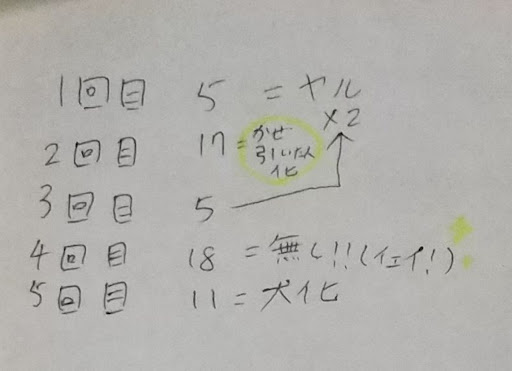 1回目 5 =ヤル
×2
2回目 17=かぜ
引いた人
化
3回目 5
4回目 18 =無し!!(イェイ!)
5回目 11=犬化